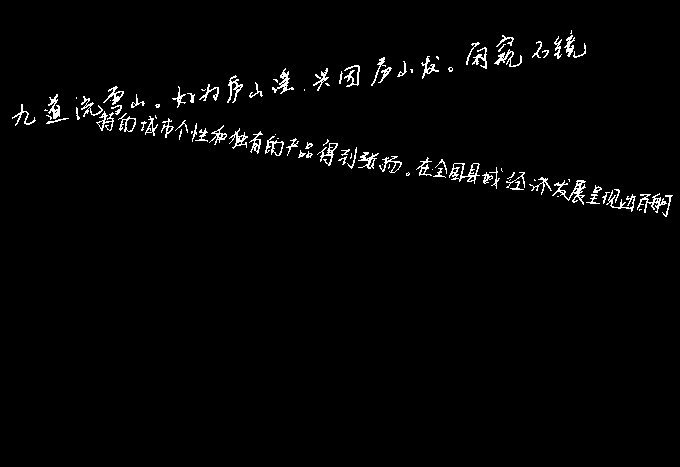 九道流雪山。好为庐山谣,兴因庐山发。闲窥石镜
特的城市个性和独有的产品得到张扬。在全国县域经济发展呈现出百舸